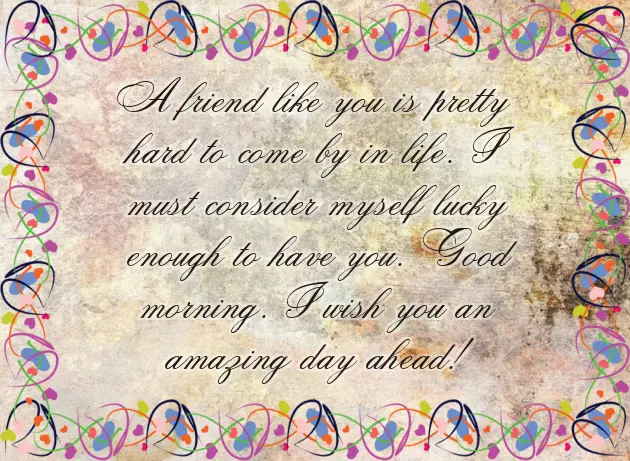 A friend like you is pretty
hard to come by in life. I
must consider myself lucky
enough to have you. Good
morning. I wish you an
amazing day ahead!